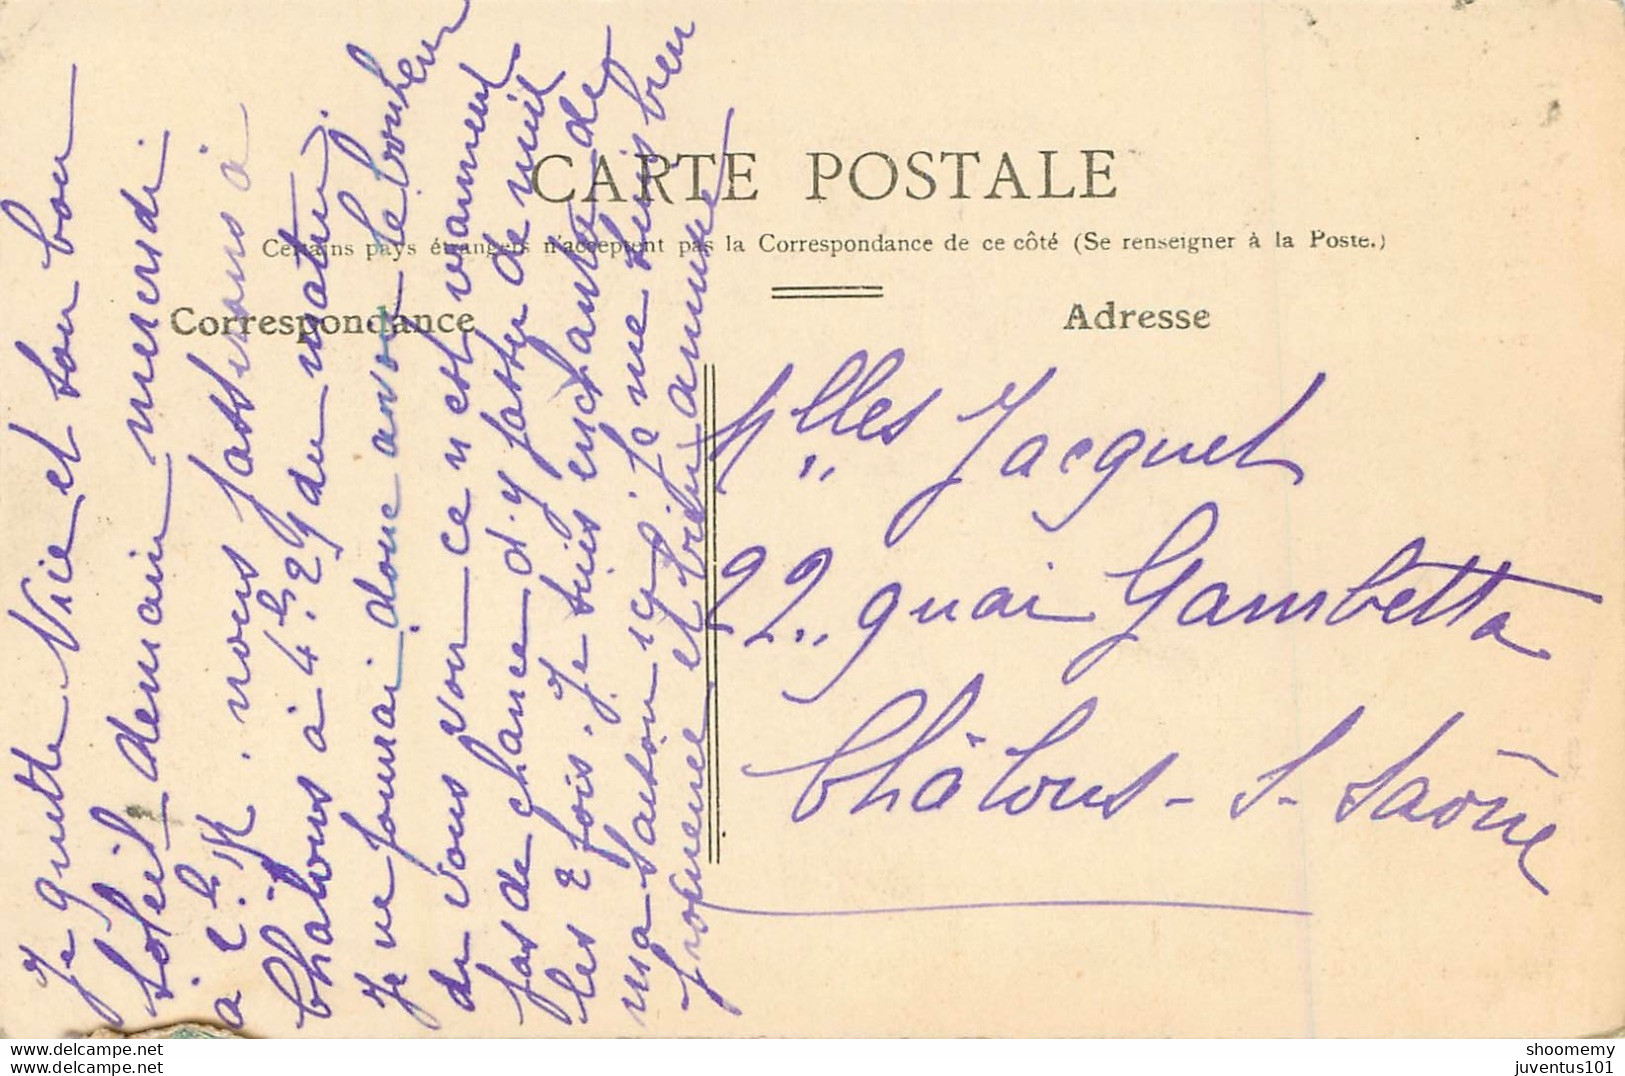 CARTE POSTALE
Certains pays étrangers n'acceptent pas la Correspondance de ce côté (Se renseigner à la Poste.)
Correspondance
Adresse
Je quitte Nice et son bon
soleil demain mercredi
à 2.h 1/2. nous passerons à
Châlons à 4.h 29 du matin.
Je ne pourrai donc avoir le bonheur
de vous voir ce n'est vraiment
pas de chance d'y passer de nuit
les 2 fois. Je suis enchantée de
ma saison ici, je me suis bien
promenée et bien amusée
Mlles Jacquet
22, quai Gambetta
Châlons-s-Saône
delcampe.net
delcampe.net
shoomemy
juventus101